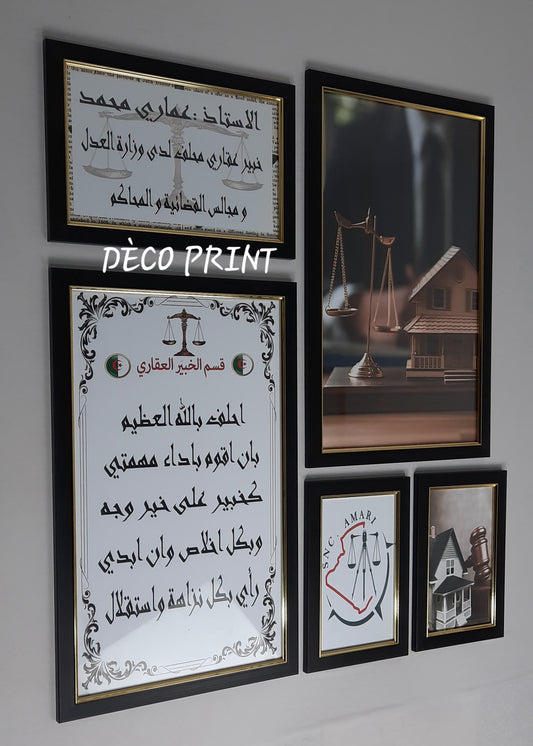 الاستاذ :عماري محمد
خبير عقاري محلف لدى وزارة العدل
و مجالس القضائية و المحاكم
DÈCO PRINT
قسم الخبير العقاري
احلف بالله العظيم
بان اقوم باداء مهمتي
كخبير على خير وجه
وبكل اخلاص وان ابدي
رأي بكل نزاهة واستقلال
SNC AMARI